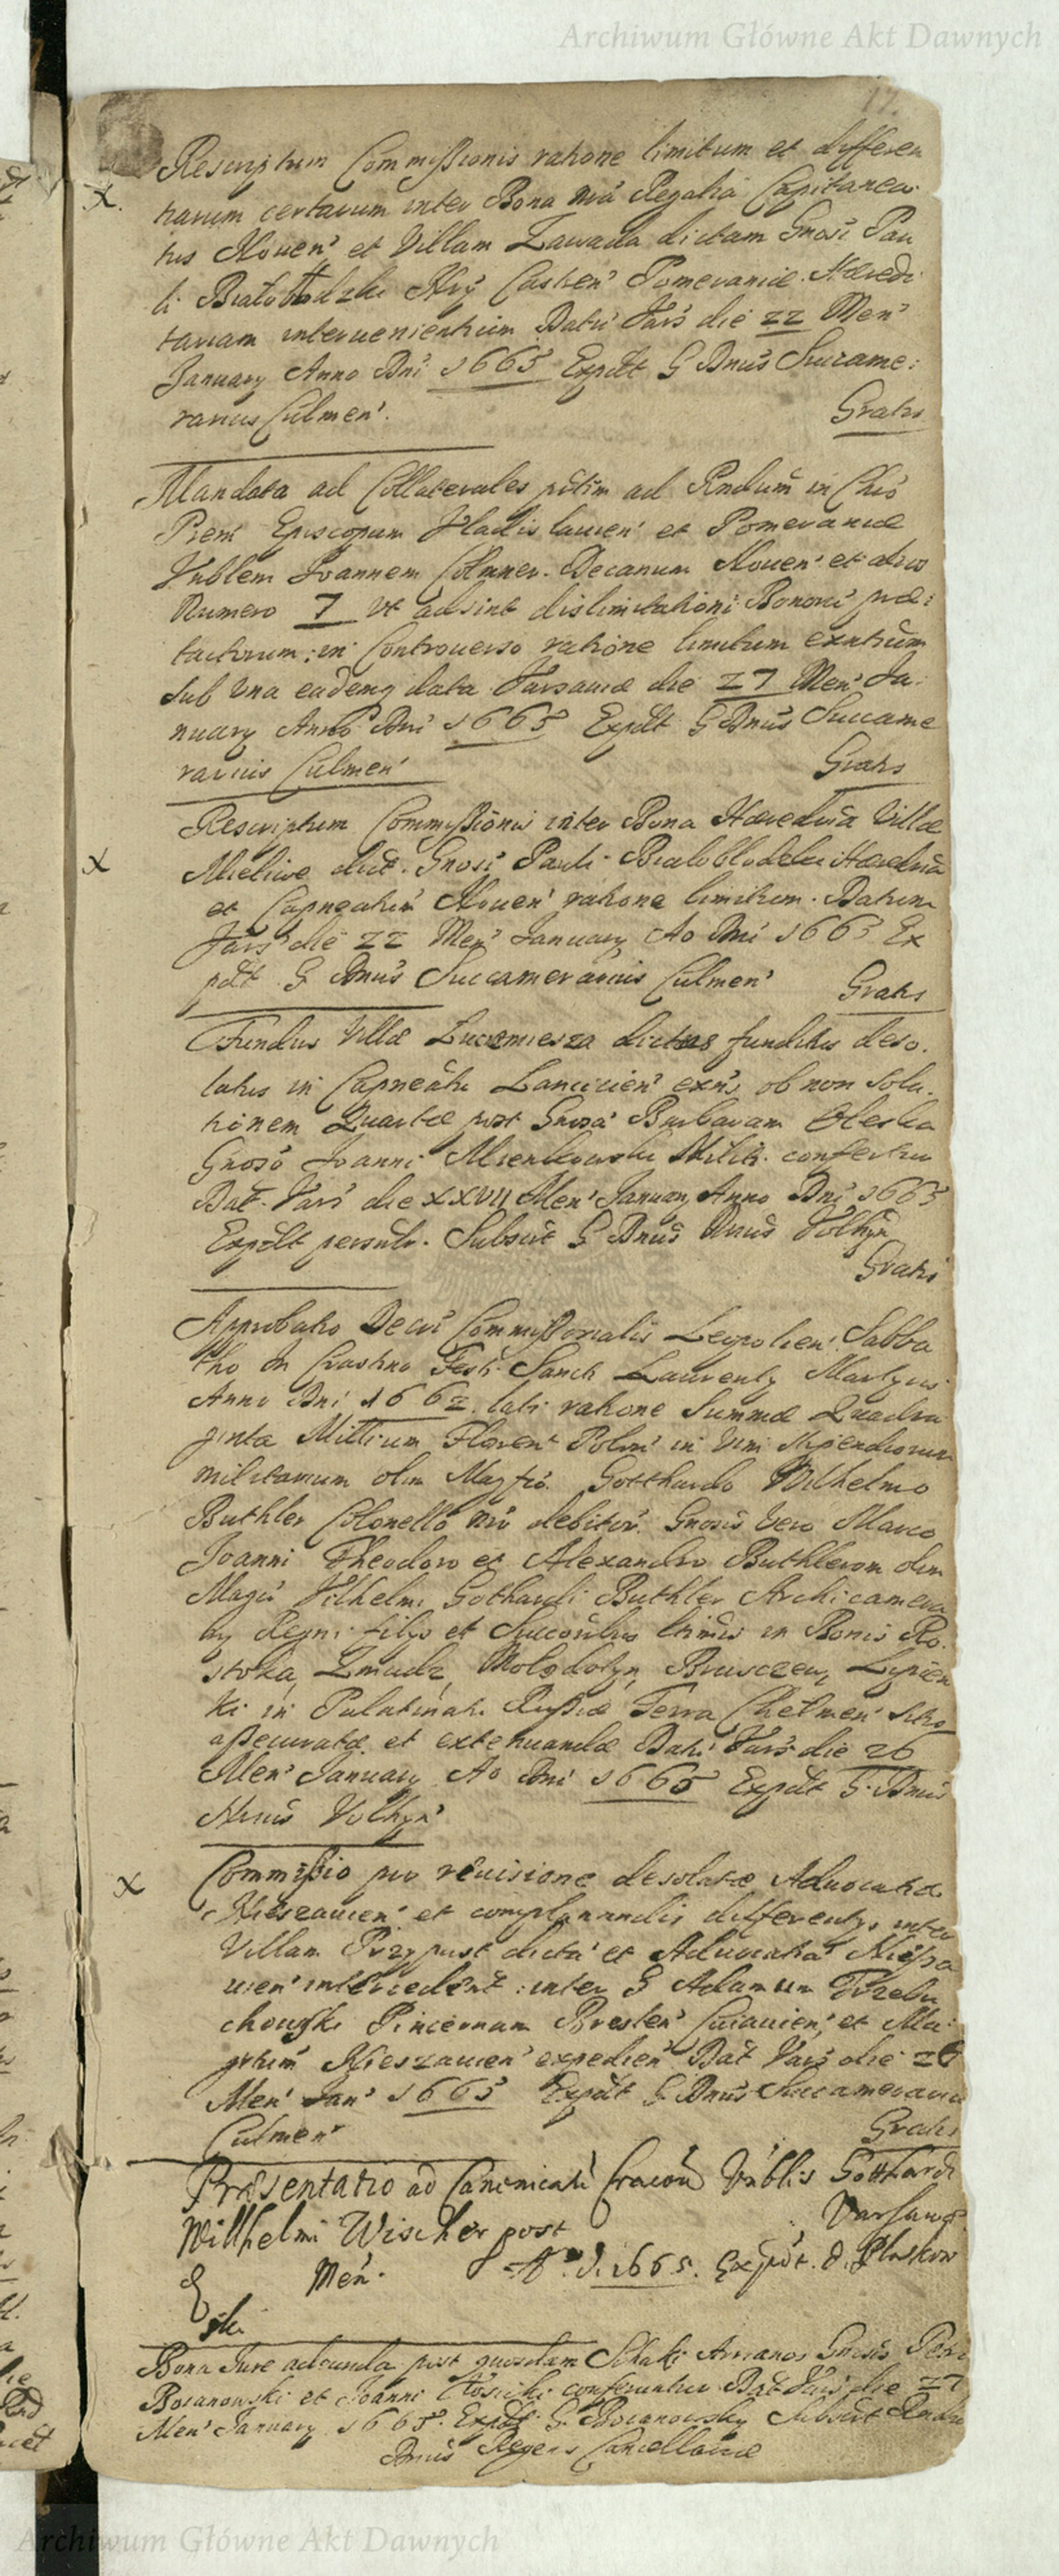 Archiwum Główne Akt Dawnych
17.
Rescriptum Commissionis ratione limitum et differen
x. tiarum certarum inter Bona nrã Regalia Capitanea
tus Noven' et Villam Zawada dictam Gnosi Pau
li Białobłodzki Castren' Pomeraniæ Hæredi
tariam intervenientium Datũ Vars die 22 Men'
January Anno Dni 1665 Expdt G Dnus Succame:
rarius Culmen'.
Gratis
Mandata ad Collaterales ad Rndum in Chro
Prem Episcopum Vladislavien' et Pomeraniæ
Vnblem Joannem Decanum Noven' et alios
Numero 7 vt adsint dislimitationi Bonorũ præ:
tactorum: in Controverso ratione limitum exntium
sub una eademq data Varsaviæ die 27 Men' Ja
nuary Anno Dni 1665 Expdt G Dnus Succame
rarius Culmen'
Gratis
Rescriptum Commissionis inter Bona Hæredria Villæ
x Mieliwe dict. Gnosi Pauli Bialoblodzki Hædria
et Capneatũ Noven' ratione limitum. Datum
Vars die 22 Men' January Ao Dni 1665 Ex
pdt G Dnus Succamerarius Culmen'
Gratis
Fundus Villæ Lucimiesza dictæ funditus deso.
latus in Capneatu Lancicien' exñs ob non solu
tionem Quartæ post Gnosã Barbaram Oleska
Gnoso Joanni Mienkowski Militi confertur
Dat. Vars die XXVII Men' January Anno Dni 1665
Expdt Subscrt G Dnus Volhyn
Gratis
Approbatio Decri Commissorialis Leopolien' Sabba
tho in Crastino Festi Sancti Laurenty Martyris
Anno Dni 1662 lati ratione Summæ Quadra
ginta Millium Floren' Polon' in vim stipendiorum
militarium olim Magfco Gotthardo Wilhelmo
Buthler Colonello nro debitor. Gnosis vero Marco
Joanni Theodoro et Alexandro Buthlerom olim
Magci Vilhelmi Gothardi Buthler Archicamera
ry Regni filys et Succoribus ltimis in Bonis Ro.
stoka, Zmudz, Mołodotyn, Brusczew, Lipien
ki in Palatinatu Russiæ Terra Chelmen' sitis
assecuratæ et extenuandæ Dati Vars die 26
Men' January Ao Dni 1665 Expdt G. Dnus
Volhyn'
x Commissio pro revisione desolatæ Advocatiæ
Nieszavien' et complanandis differentys inter
Villam Przypust dictã et Advocatiã Niessa
vien' intercedent: inter G Adamum Trzebu
chowski Pincernam Bresten' Cuiavien', et Ma
grtum Nieszavien' expedien' Dat Vars die 26
Men' Jan' 1665 Expdt G Dnus Succamerarius
Culmen'
Gratis
Præsentatio ad Canonicatũ Cracoũ Vnblis Gotthardi
Willhelmi Wischer post Varsaviæ
Men. Aº. D. 1665. Expdt. D. Plaskow
ski
Bona Jure caduco post quosdam Arrianos Gnosis Petro
Bosanowski et Joanni conferuntur Dat Vars die 27
Men' January 1665. Expdt G. Bosanowsky Subscrt Rndus
Dnus Regens Cancellariæ
Archiwum Główne Akt Dawnych